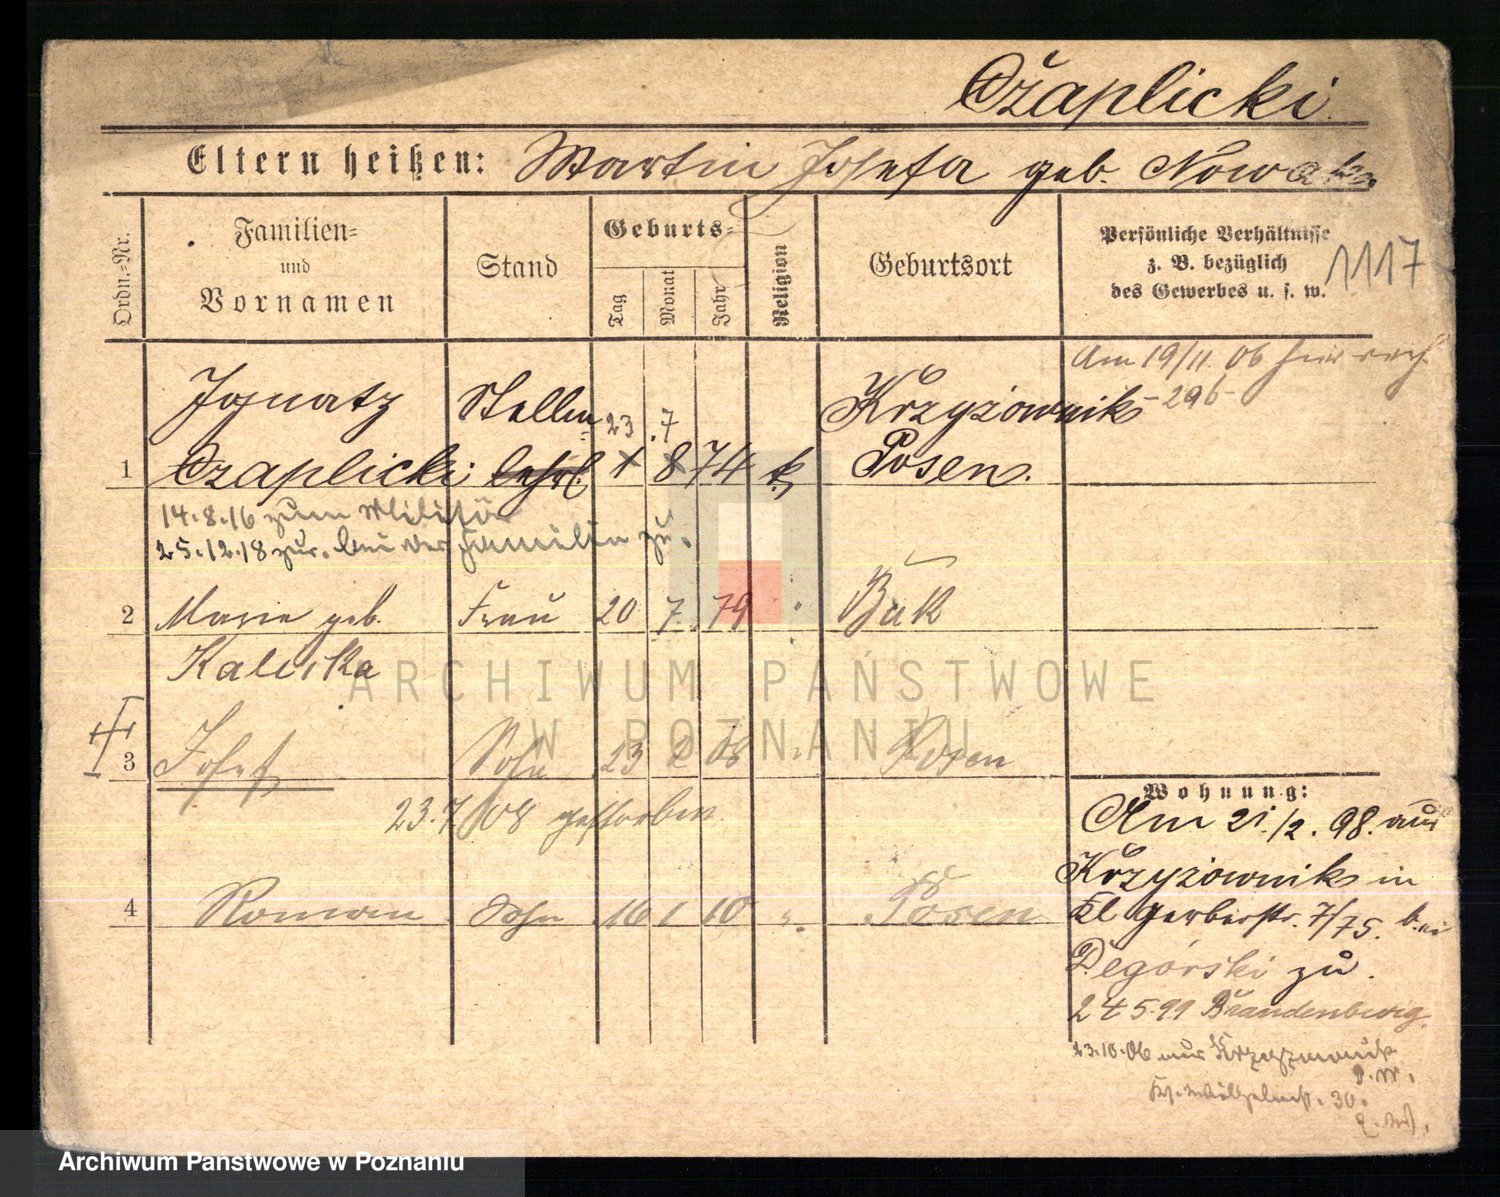 Czaplicki
Eltern heißen: Martin Josefa geb. Nowak
Ordn.-Nr.
Familien-
und
Vornamen
Stand
Geburts-
Tag
Monat
Jahr
Religion
Geburtsort
Persönliche Verhältnisse
z. B. bezüglich
des Gewerbes u. s. w.
1117
Am 19/11 06
-296-
Ignatz Stellm 23 .7 Krzyżownik
1 Czaplicki 1 8 74 k Posen.
14.8.16 zum Militär
25.12.18 zur. bei der Familie zu.
2 Marie geb. Frau 20 7. 79 " Buk
Kaliska
3 Josef Sohn 23 2 08 " Posen
23.7 08 gestorben
4 Roman Sohn 16 1 10 " Posen
Wohnung:
Am 21./2. 98. aus
Krzyżownik in
Kl Gerberstr. 7/75. bei
Degórski zu.
24 5.99 Brandenburg.
23.10.06 aus
30.
ARCHIWUM PAŃSTWOWE
W POZNANIU
Archiwum Państwowe w Poznaniu